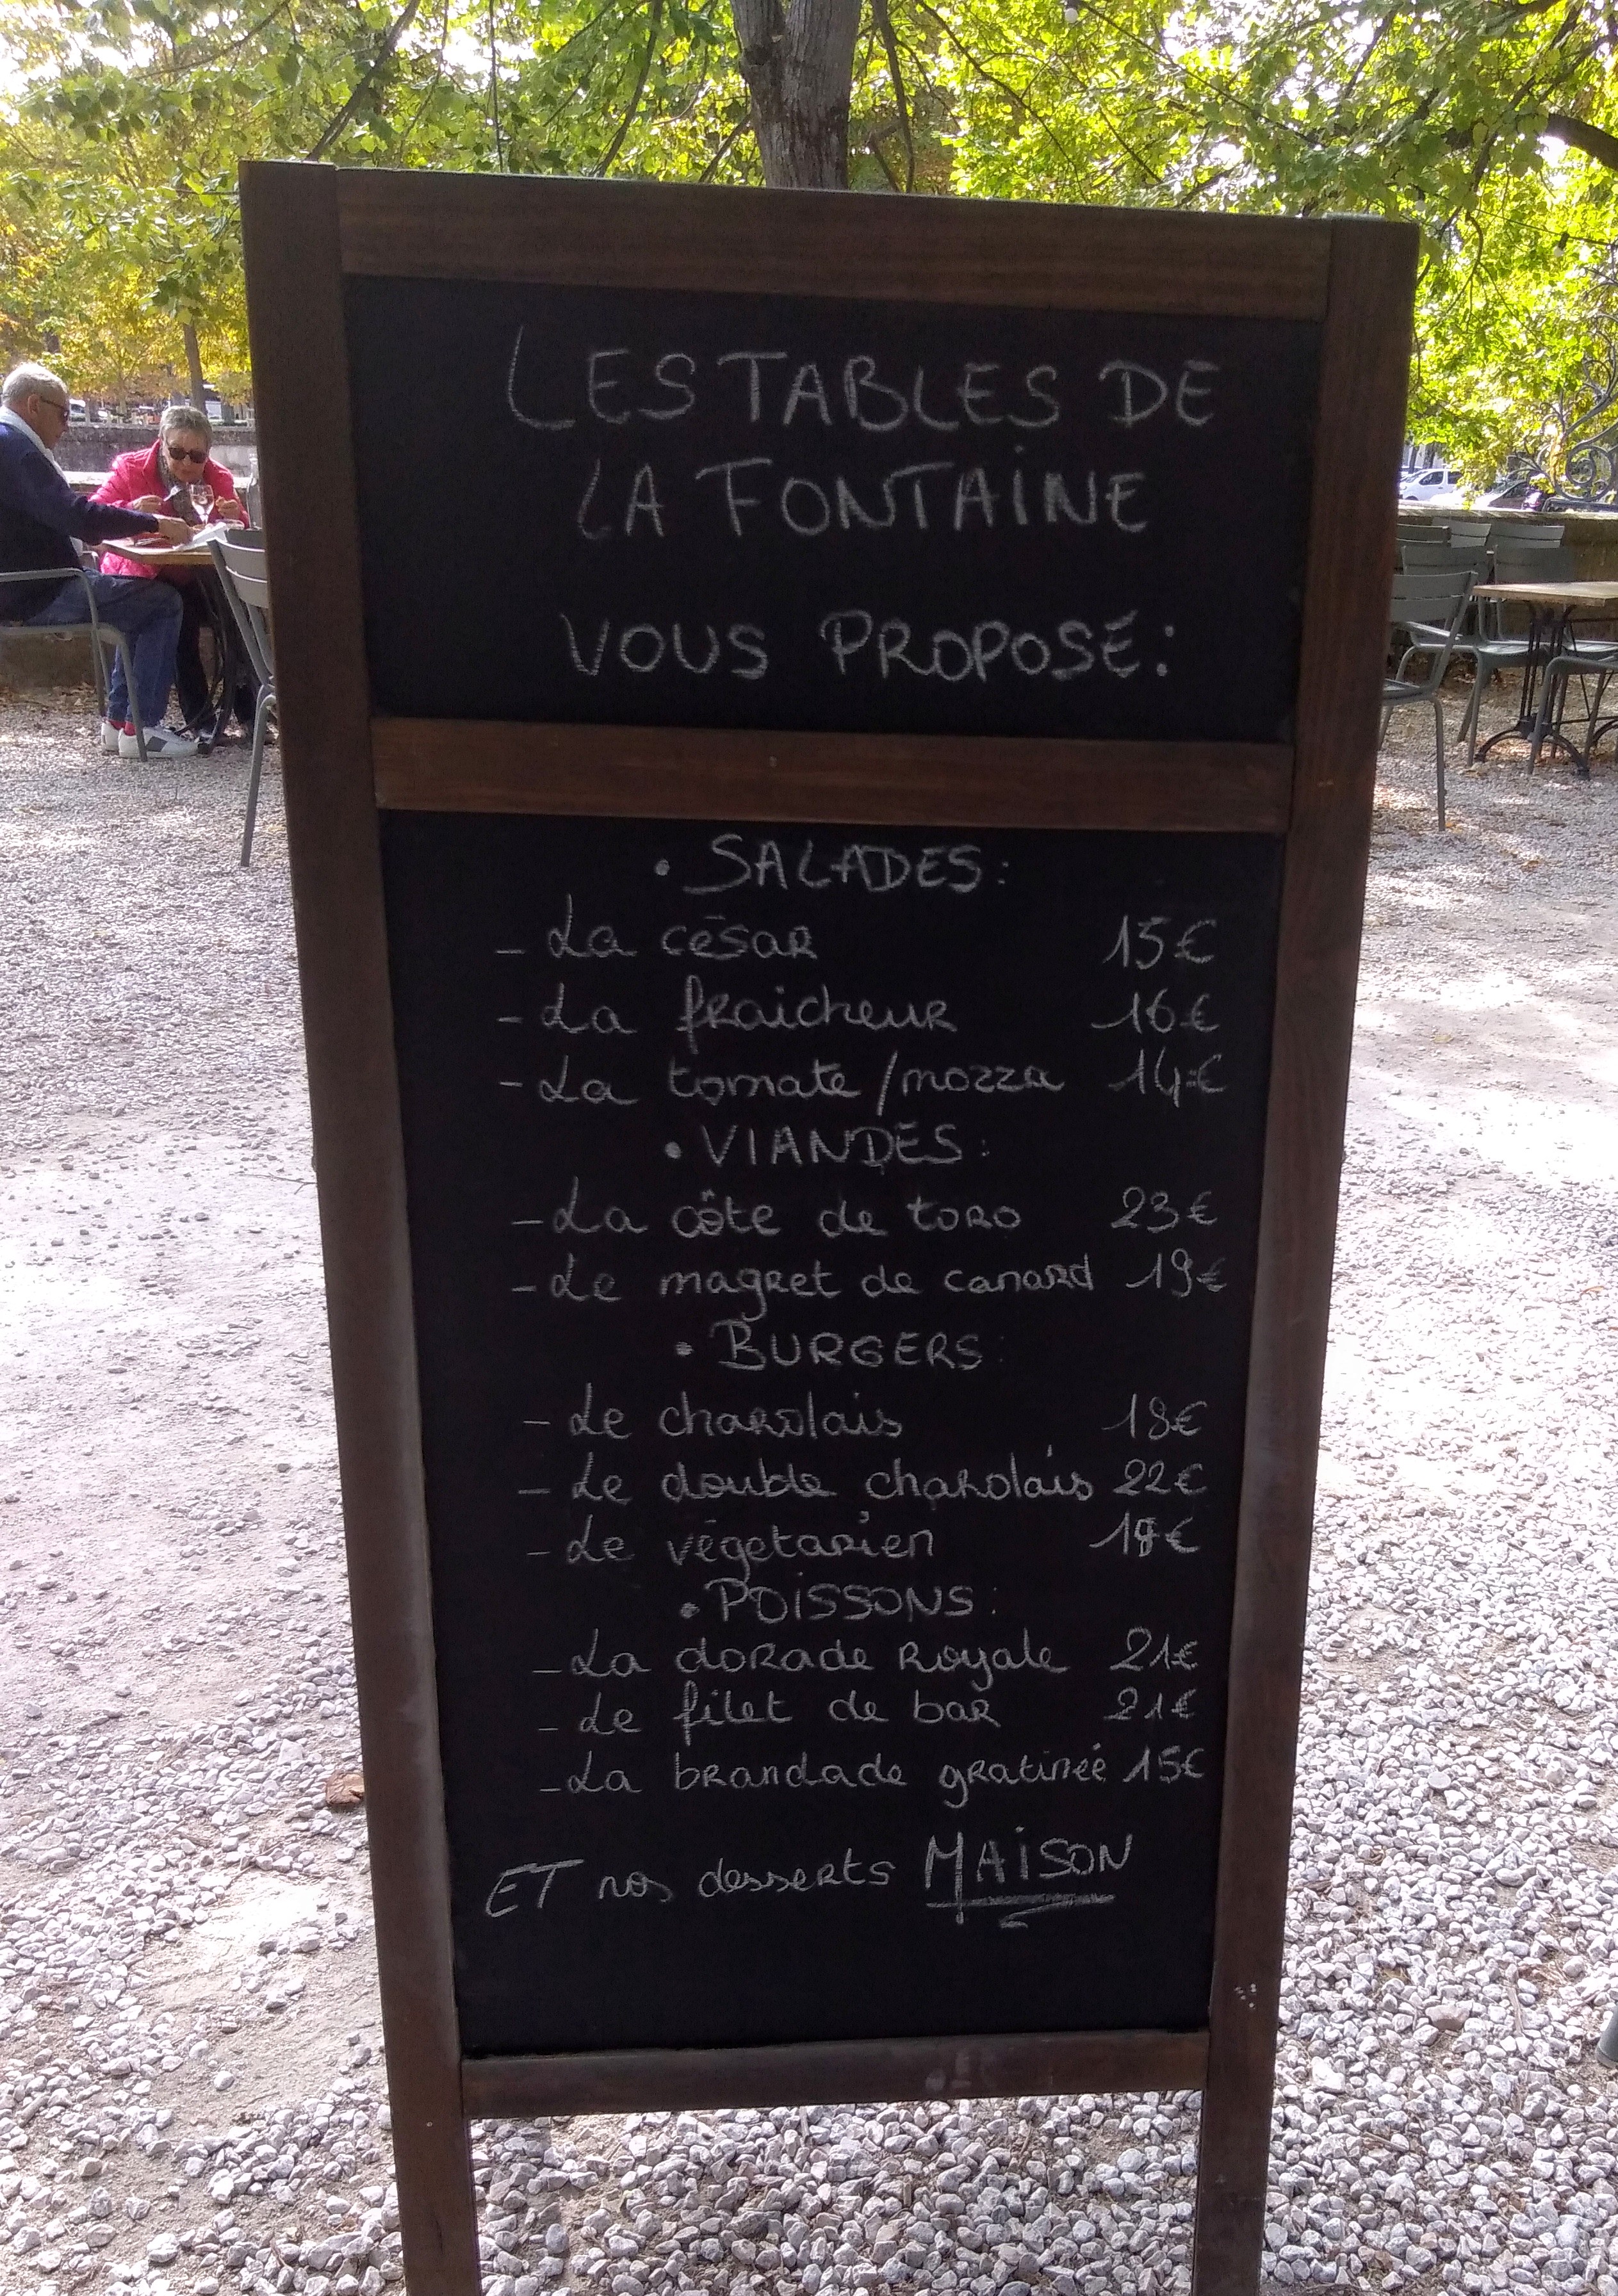 LES TABLES DE
LA FONTAINE
VOUS PROPOSE:
• SALADES:
- La césar 15€
- La fraicheur 16€
- La tomate/mozza 14€
• VIANDES:
- La côte de toro 23€
- Le magret de canard 19€
• BURGERS:
- Le charolais 18€
- Le double charolais 22€
- Le végetarien
• POISSONS:
- La dorade royale 21€
- Le filet de bar 21€
- La brandade gratinée 15€
ET nos desserts MAISON